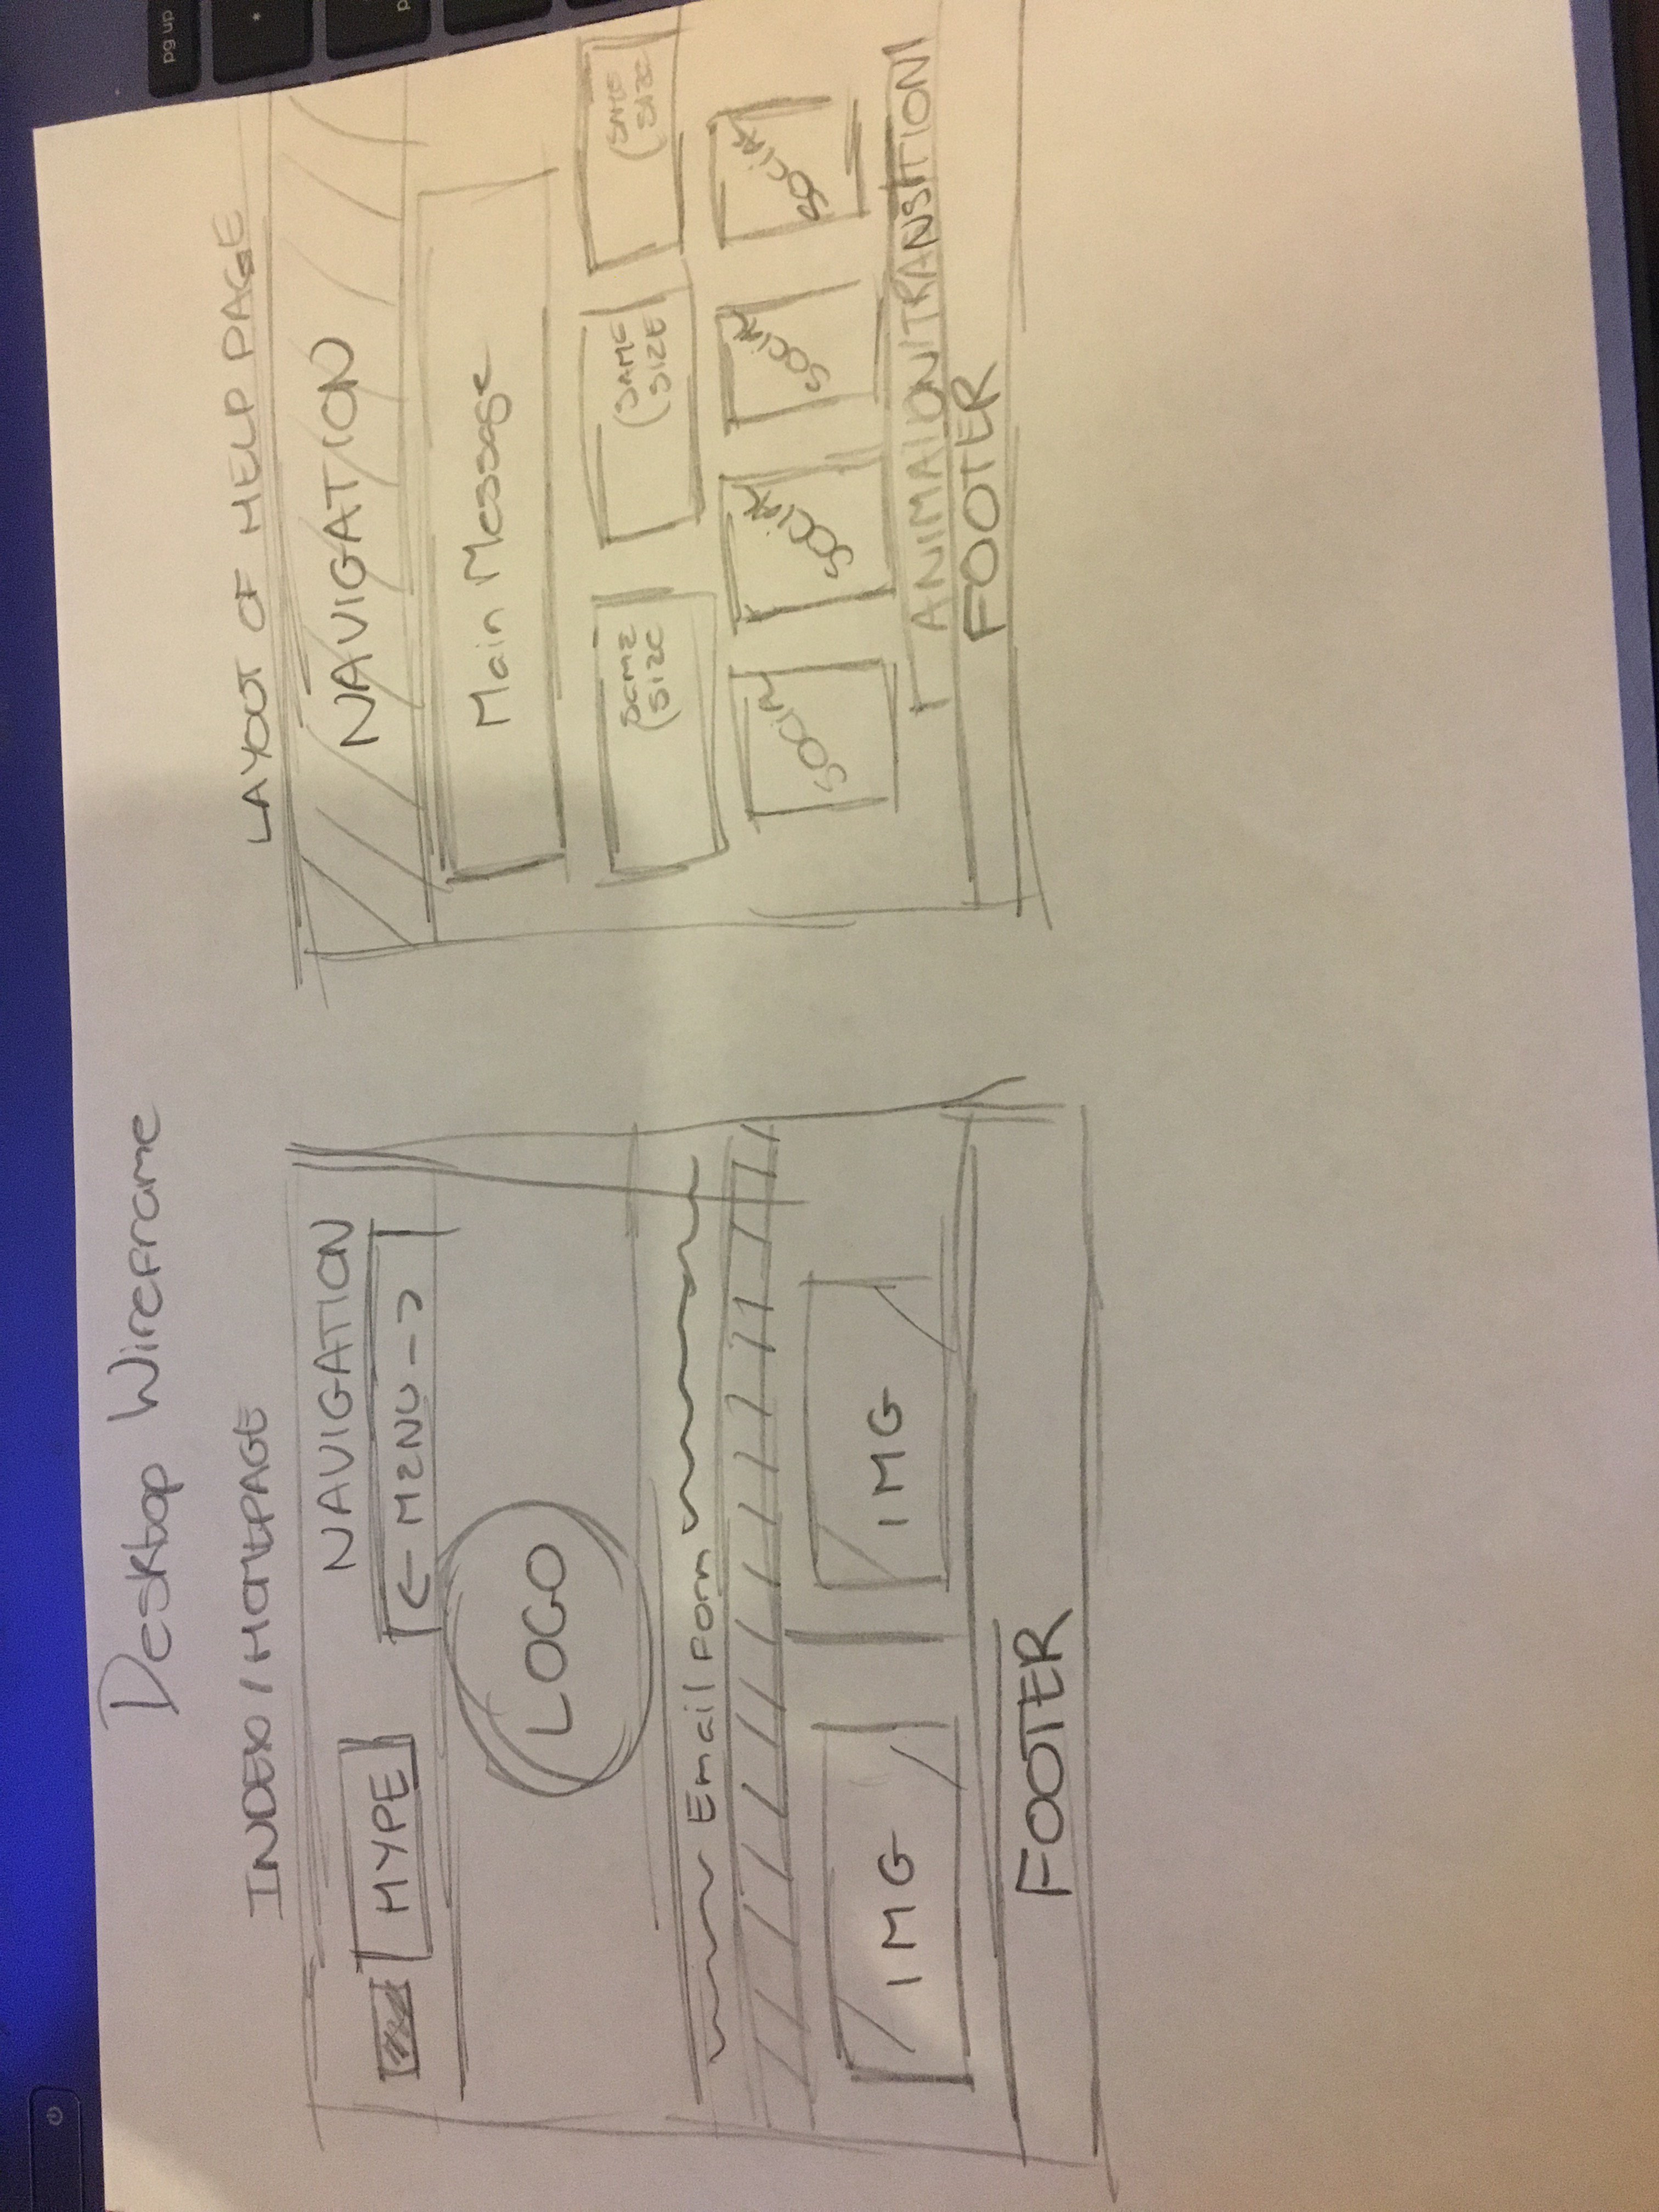 Desktop Wireframe
INDEX/HOMEPAGE
NAVIGATION
HYPE
<- MENU ->
LOGO
Email Form
IMG
IMG
FOOTER
LAYOUT OF HELP PAGE
NAVIGATION
Main Message
(SAME
SIZE
(SAME
SIZE
(SAME
SIZE
SOCIAL
SOCIAL
SOCIAL
SOCIAL
ANIMAION/TRANSITION
FOOTER
pg up
*